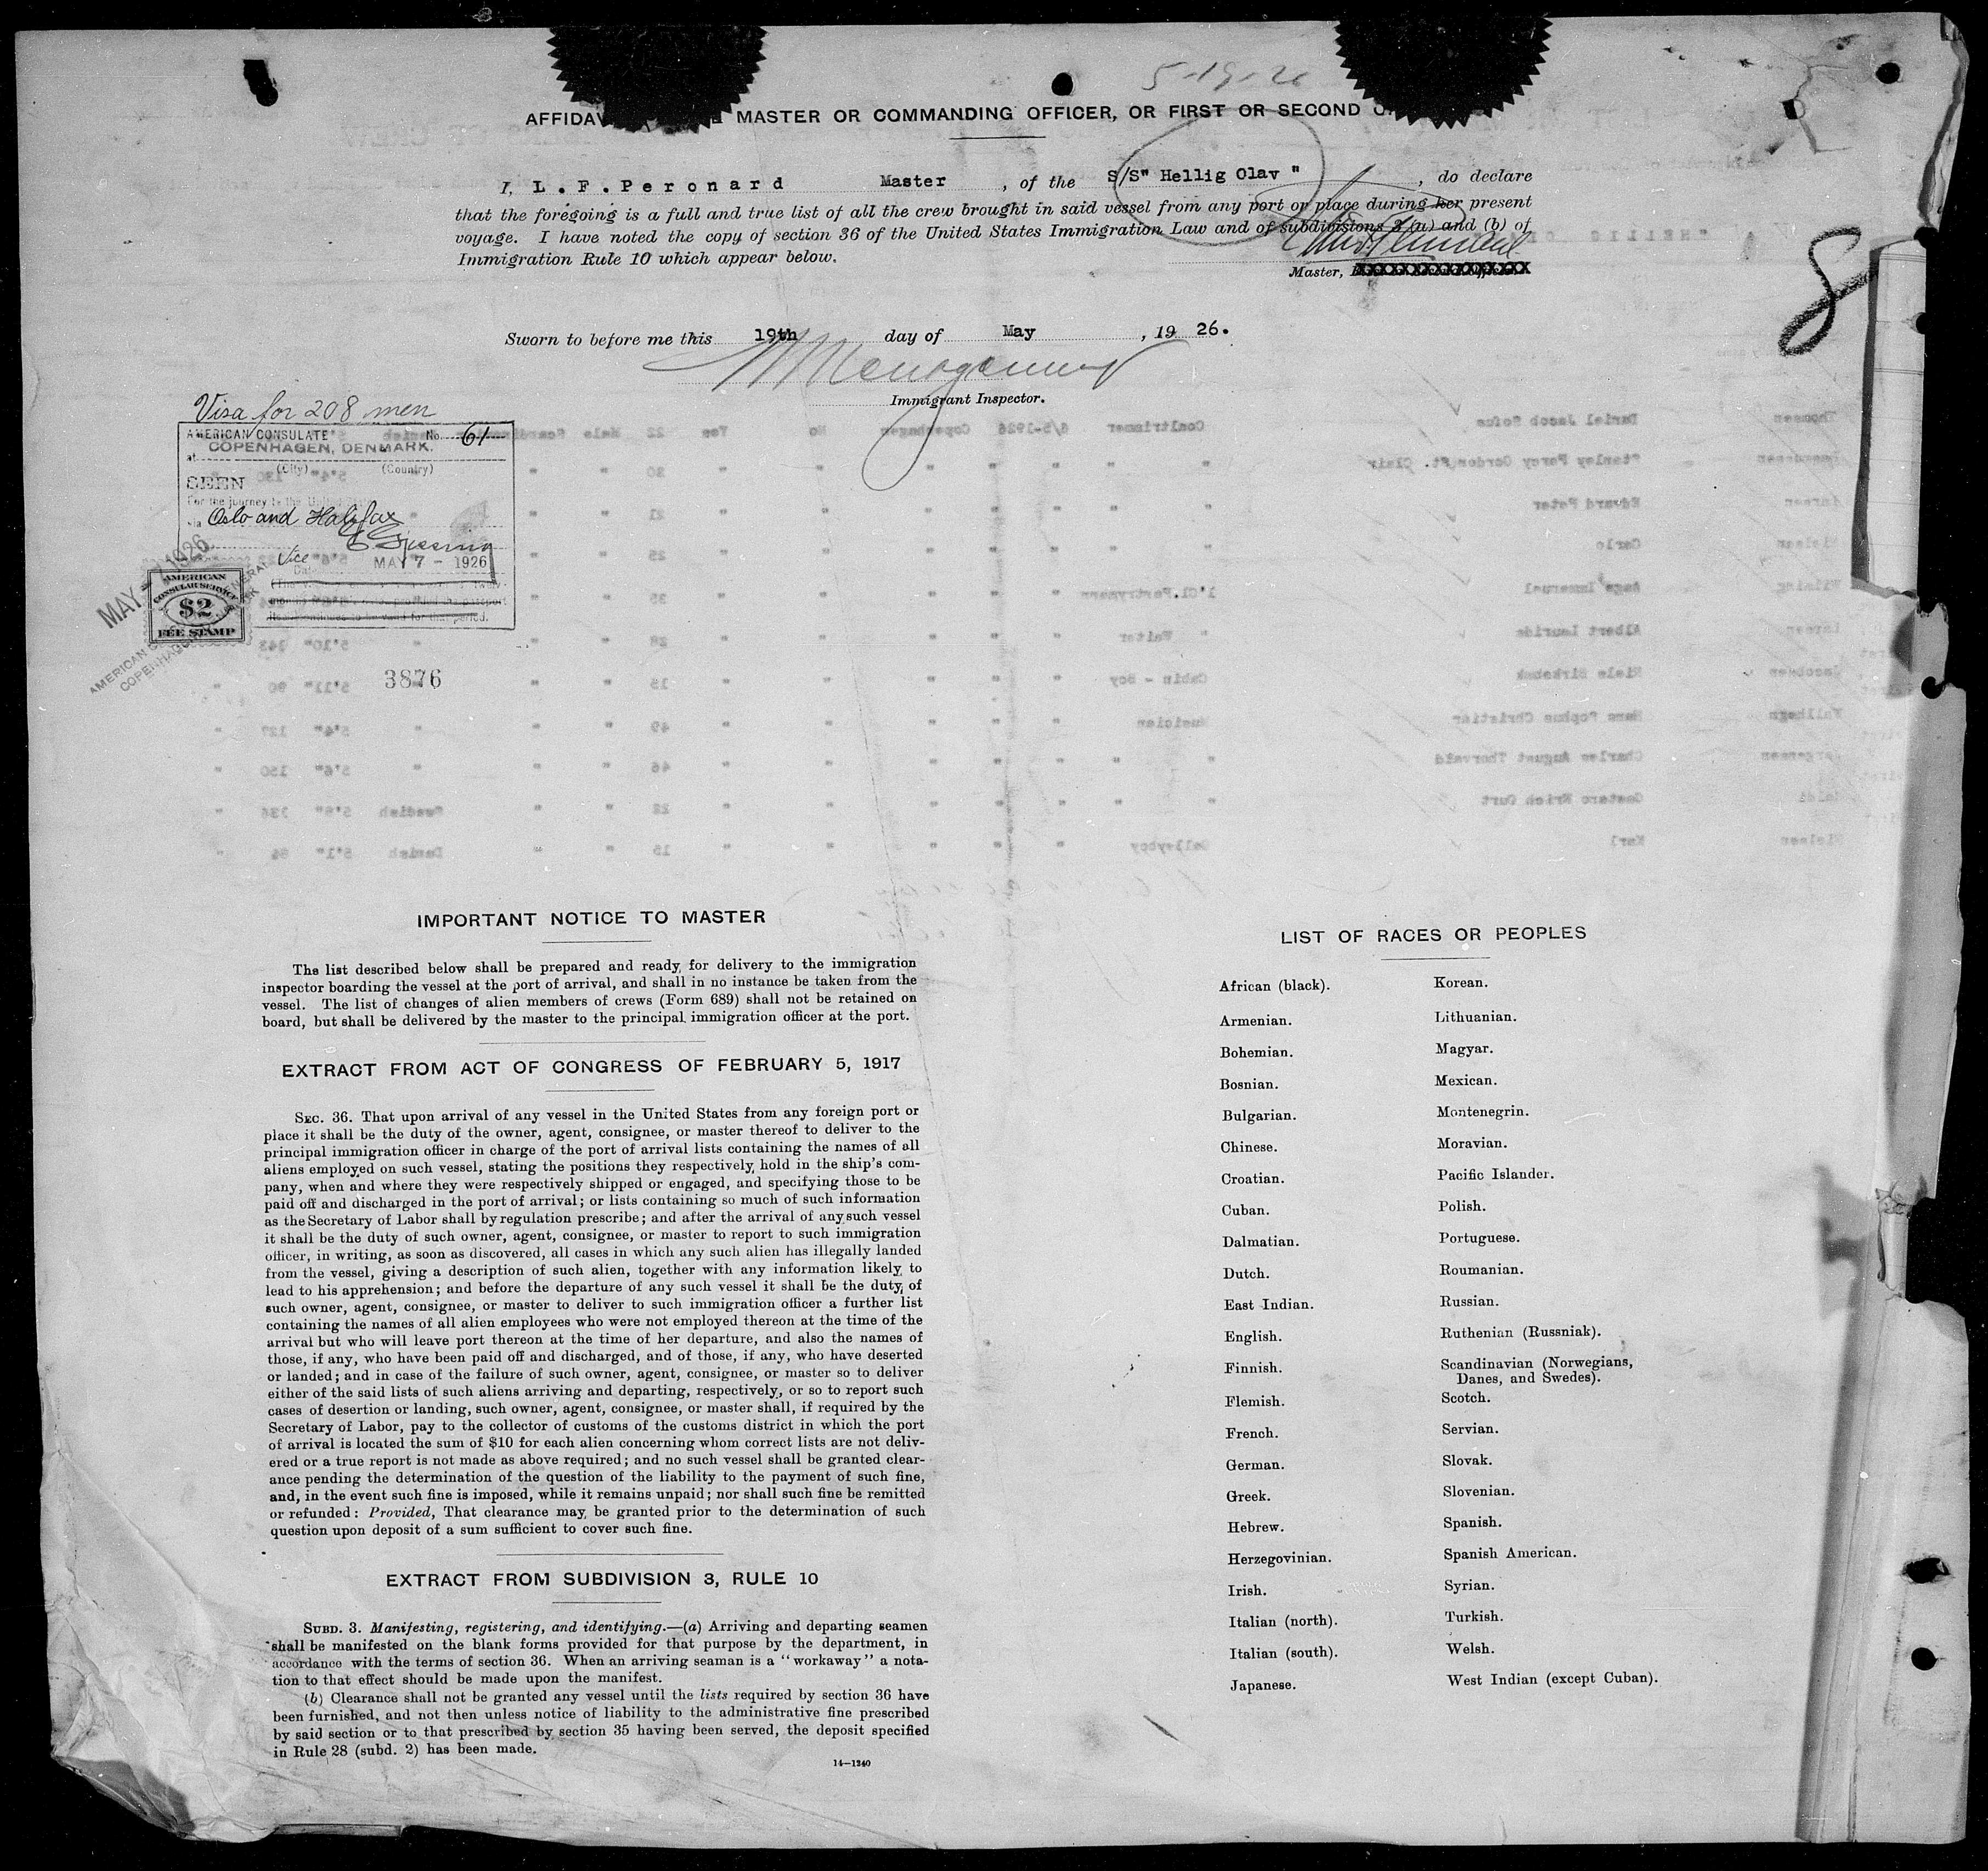 5-19-26
AFFIDAV MASTER OR COMMANDING OFFICER, OR FIRST OR SECOND O
I, L.F.Peronard Master, of the S/S" Hellig Olav ", do declare
that the foregoing is a full and true list of all the crew brought in said vessel from any port or place during her present
voyage. I have noted the copy of section 36 of the United States Immigration Law and of subdivisions 3 (a) and (b) of
Immigration Rule 10 which appear below.
Master,
8
Sworn to before me this 19th day of May, 19 26.
Immigrant Inspector.
Visa for 208 men
AMERICAN CONSULATE No. 61
at COPENHAGEN, DENMARK.
(City) (Country)
SEEN
For the journey to the United States
via Oslo and Halifax
Vice
MAY 7 - 1926
MAY 1926
AMERICAN
CONSULAR SERVICE
$2
FEE STAMP
3876
IMPORTANT NOTICE TO MASTER
The list described below shall be prepared and ready for delivery to the immigration
inspector boarding the vessel at the port of arrival, and shall in no instance be taken from the
vessel. The list of changes of alien members of crews (Form 689) shall not be retained on
board, but shall be delivered by the master to the principal immigration officer at the port.
EXTRACT FROM ACT OF CONGRESS OF FEBRUARY 5, 1917
SEC. 36. That upon arrival of any vessel in the United States from any foreign port or
place it shall be the duty of the owner, agent, consignee, or master thereof to deliver to the
principal immigration officer in charge of the port of arrival lists containing the names of all
aliens employed on such vessel, stating the positions they respectively hold in the ship's com-
pany, when and where they were respectively shipped or engaged, and specifying those to be
paid off and discharged in the port of arrival; or lists containing so much of such information
as the Secretary of Labor shall by regulation prescribe; and after the arrival of any such vessel
it shall be the duty of such owner, agent, consignee, or master to report to such immigration
officer, in writing, as soon as discovered, all cases in which any such alien has illegally landed
from the vessel, giving a description of such alien, together with any information likely to
lead to his apprehension; and before the departure of any such vessel it shall be the duty of
such owner, agent, consignee, or master to deliver to such immigration officer a further list
containing the names of all alien employees who were not employed thereon at the time of the
arrival but who will leave port thereon at the time of her departure, and also the names of
those, if any, who have been paid off and discharged, and of those, if any, who have deserted
or landed; and in case of the failure of such owner, agent, consignee, or master so to deliver
either of the said lists of such aliens arriving and departing, respectively, or so to report such
cases of desertion or landing, such owner, agent, consignee, or master shall, if required by the
Secretary of Labor, pay to the collector of customs of the customs district in which the port
of arrival is located the sum of $10 for each alien concerning whom correct lists are not deliv-
ered or a true report is not made as above required; and no such vessel shall be granted clear-
ance pending the determination of the question of the liability to the payment of such fine,
and, in the event such fine is imposed, while it remains unpaid; nor shall such fine be remitted
or refunded: Provided, That clearance may be granted prior to the determination of such
question upon deposit of a sum sufficient to cover such fine.
EXTRACT FROM SUBDIVISION 3, RULE 10
SUBD. 3. Manifesting, registering, and identifying.—(a) Arriving and departing seamen
shall be manifested on the blank forms provided for that purpose by the department, in
accordance with the terms of section 36. When an arriving seaman is a "workaway" a nota-
tion to that effect should be made upon the manifest.
(b) Clearance shall not be granted any vessel until the lists required by section 36 have
been furnished, and not then unless notice of liability to the administrative fine prescribed
by said section or to that prescribed by section 35 having been served, the deposit specified
in Rule 28 (subd. 2) has been made.
14—1240
LIST OF RACES OR PEOPLES
African (black).
Armenian.
Bohemian.
Bosnian.
Bulgarian.
Chinese.
Croatian.
Cuban.
Dalmatian.
Dutch.
East Indian.
English.
Finnish.
Flemish.
French.
German.
Greek.
Hebrew.
Herzegovinian.
Irish.
Italian (north).
Italian (south).
Japanese.
Korean.
Lithuanian.
Magyar.
Mexican.
Montenegrin.
Moravian.
Pacific Islander.
Polish.
Portuguese.
Roumanian.
Russian.
Ruthenian (Russniak).
Scandinavian (Norwegians,
Danes, and Swedes).
Scotch.
Servian.
Slovak.
Slovenian.
Spanish.
Spanish American.
Syrian.
Turkish.
Welsh.
West Indian (except Cuban).